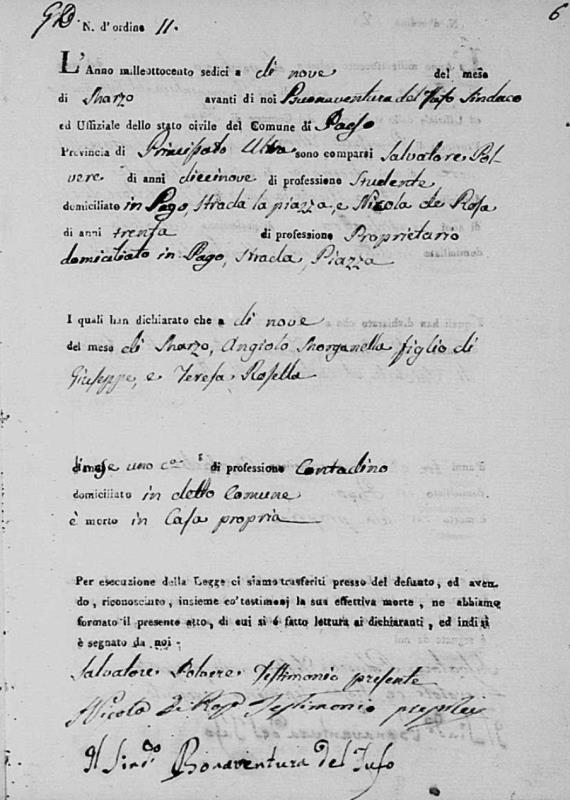 N. d'ordine 11.
6
L'Anno milleottocento sedici a di nove del mese
di Marzo avanti di noi Buonaventura del Tufo Sindaco
ed Uffiziale dello stato civile del Comune di Pago
Provincia di Principato Ultra sono comparsi Salvatore Pol-
vere di anni diecinove di professione Studente
domiciliato in Pago, Strada la piazza, e Nicola de Rosa
di anni trenta di professione Proprietario
domiciliato in Pago, Strada, Piazza
I quali han dichiarato che a di nove
del mese di Marzo, Angiolo Morganella figlio di
Giuseppe, e Teresa Rosella
di mese uno di professione Contadino
domiciliato in detto Comune
è morto in Casa propria
Per esecuzione della Legge ci siamo trasferiti presso del defunto, ed aven-
do, riconosciuto, insieme co' testimonj la sua effettiva morte, ne abbiamo
formato il presente atto, di cui si è fatto lettura ai dichiaranti, ed indi si
è segnato da noi.
Salvatore Polvere Testimonio presente
Nicola di Rosa Testimonio
Il Sind.co Bonaventura del Tufo